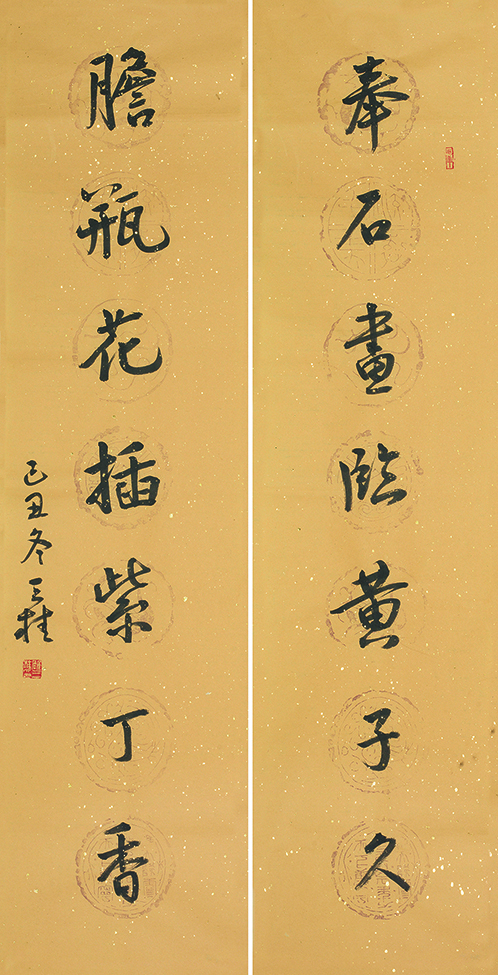 奉石畫臨黃子久
膽瓶花插紫丁香
己丑冬